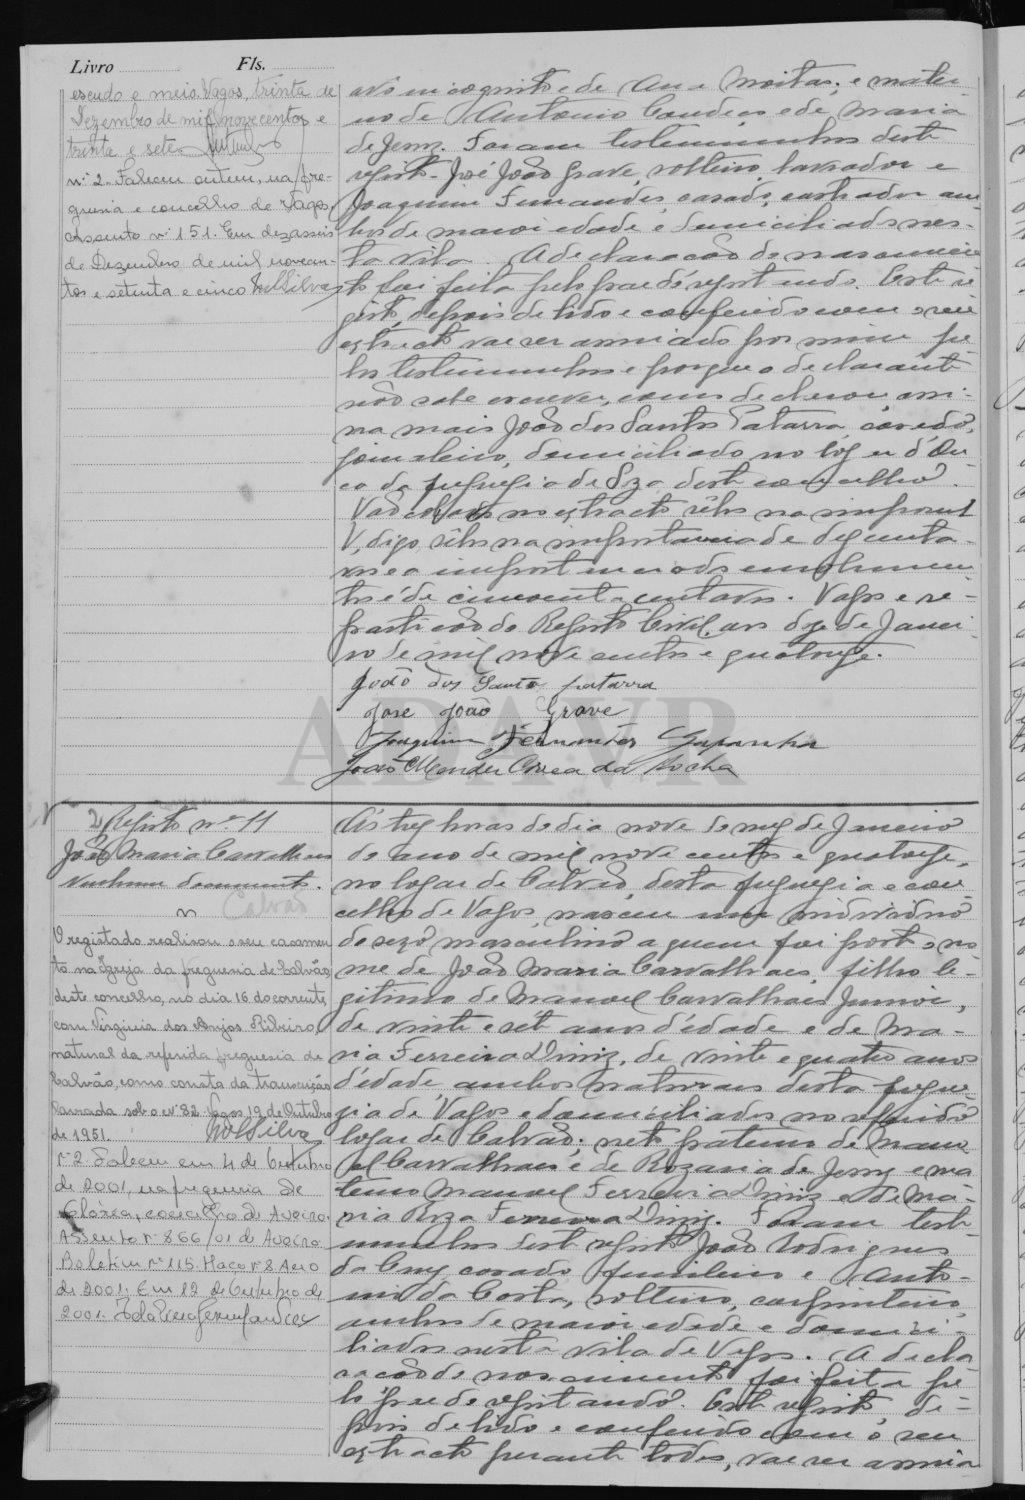 Livro Fls.
escudo e meio. Vagos, trinta de
Dezembro de mil novecentos e
trinta e sete
nº 2 - Faleceu ontem, na fre-
guesia e concelho de Vagos.
Assento nº 151. Em dezasseis
de Dezembro de mil novecen-
tos e setenta e cinco
avô incognito e de Ana Moitas; e mater-
no de Antonio e de Maria
de Jesus. Foram testemunhas deste
registo José João Grave, solteiro, lavrador e
Joaquim Fernandes, casado, am-
bos de maior edade e domiciliados nes-
ta vila. A declaração do nascimen-
to foi feita pelo pae do registando. Este re-
gisto, depois de lido e conferido com o seu
extracto vae ser assinado por mim pe-
las testemunhas e porque o declarante
não sabe escrever, como declarou, assi-
na mais João dos Santos Patarra, casado,
jornaleiro, domiciliado no logar d'Ou-
ca da freguesia de Soza deste concelho.
Vão colados no extracto sêlos na import
V, digo, sêlos na importancia de
e a importancia dos emolumen-
tos é de cincoenta centavos. Vagos e re-
partição do Registo Civil, aos doze de Janei-
ro de mil nove centos e quatorze.
João dos Santos patarra
José João Grave
Joaquim Fernandes
João Mendes Correa da Rocha
ADAVR
Registo nº 11
João Maria Carvalhaes
Nenhum documento.
Calvão
O registado realisou o seu casamen-
to na Igreja da freguesia de Calvão,
deste concelho, no dia 16 do corrente,
com Virginia dos Anjos Ribeiro,
natural da referida freguesia de
Calvão, como consta da transcrição
lavrada sob o nº 82. Vagos, 19 de Outubro
de 1951.
nº 2 Faleceu em 4 de Outubro
de 2001, na freguesia de
Glória, concelho de Aveiro.
Assento nº 866/01 de Aveiro.
Boletim nº 115. Maço nº 8 Ano
de 2001. Em 12 de Outubro de
2001.
Ás tres horas do dia nove do mez de Janeiro
do ano de mil nove centos e quatorze,
no logar de Calvão, desta freguezia e con-
celho de Vagos, nasceu um individuo
do sexo masculino a quem foi posto o no-
me de João Maria Carvalhaes, filho le-
gitimo de Manuel Carvalhais Junior,
de vinte e sete anos d'edade e de Ma-
ria Ferreira Diniz, de vinte e quatro anos
d'edade, ambos naturaes desta fregue-
zia de Vagos e domiciliados no referido
logar de Calvão; neto paterno de Manu-
el Carvalhaes e de Rozaria de Jesus e ma-
terno Manuel Ferreira Diniz e de Ma-
ria Roza Ferreira Diniz. Foram teste-
munhas deste registo João Rodrigues
da Cruz, casado, funileiro e Anto-
nio da Costa, solteiro, carpinteiro,
ambos de maior edade e domici-
liados nesta vila de Vagos. A decla-
ração de nascimento foi feita pe-
lo pae do registando. Este registo, de-
pois de lido e conferido com o seu
extracto perante todos, vae ser assina